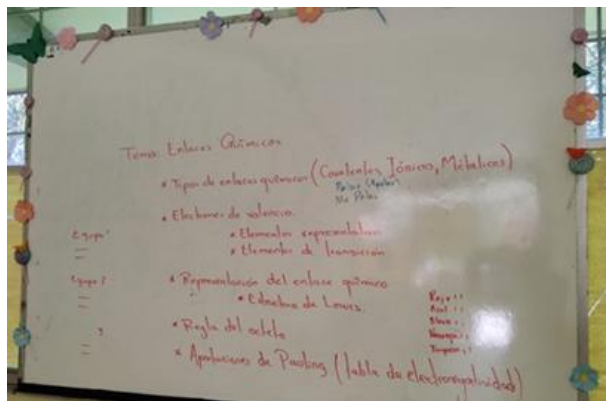 Tema: Enlaces Químicos
* Tipos de enlaces químicos (Covalentes, Iónicos, Metálicos)
Polar
No Polar
* Electrones de valencia.
Equipo 1
* Elementos representativos
* Elementos de transición
Equipo 2
* Representación del enlace químico
* Estructura de Lewis.
Rojo
Azul
3
* Regla del octeto
Naranja
* Aportaciones de Pauling (tabla de electronegatividad)